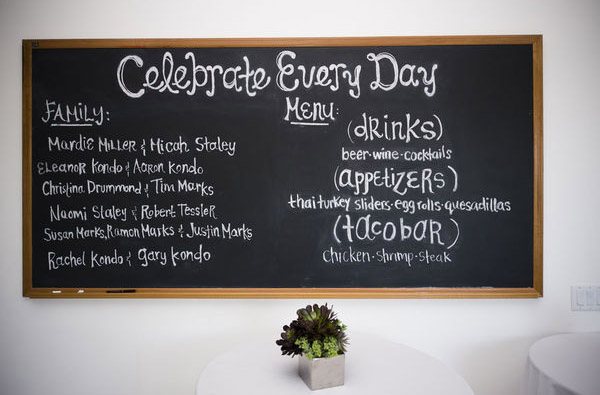 Celebrate Every Day
FAMILY:
Mardie Miller & Micah Staley
Eleanor Kondo & Aaron Kondo
Christina Drummond & Tim Marks
Naomi Staley & Robert Tessler
Susan Marks, Ramon Marks & Justin Marks
Rachel Kondo & Gary Kondo
MENU:
(drinks)
beer·wine·cocktails
(appetizers)
thai turkey sliders·egg rolls·quesadillas
(taco bar)
chicken·shrimp·steak